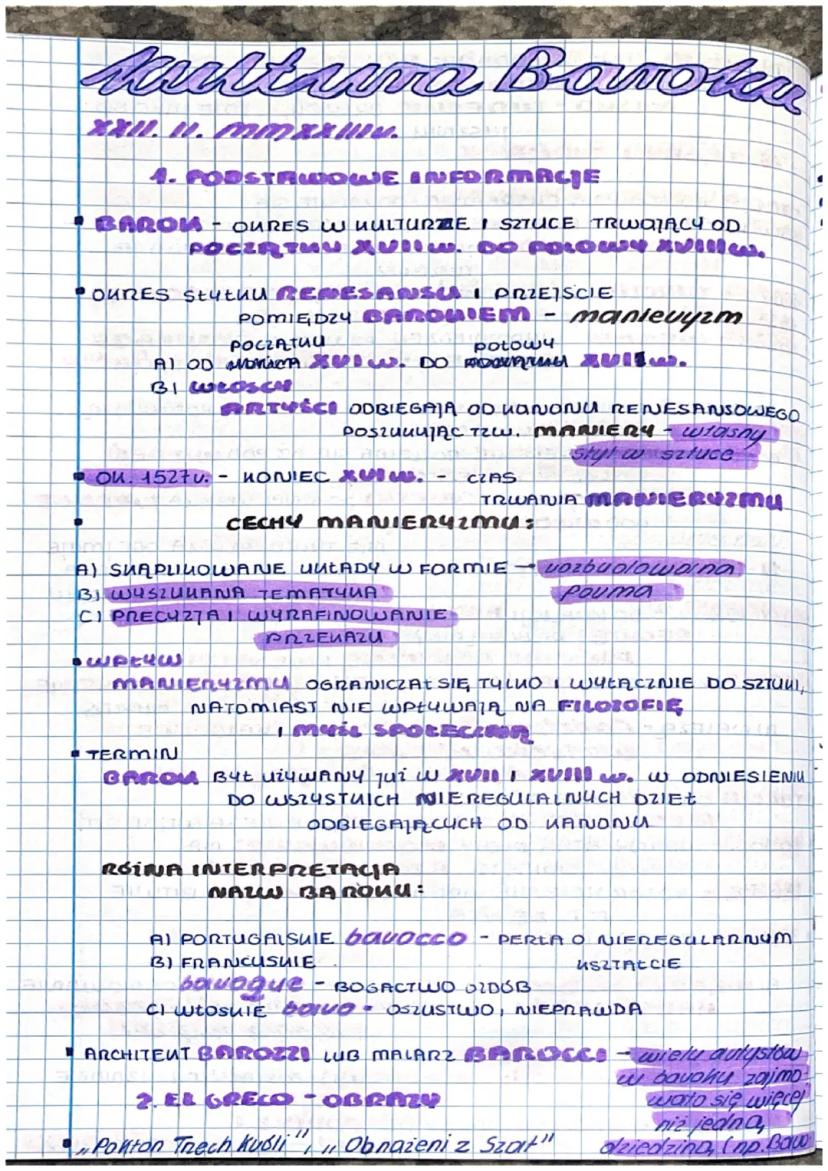 Kultura Baroku
XXII. II. MMXXIIIr.
1. PODSTAWOWE INFORMACJE
• BAROK - OKRES W KULTURZE I SZTUCE TRWAJĄCY OD
POCZĄTKU XVII w. DO POŁOWY XVIII w.
• OKRES STYŁKU RENESANSU I PRZEJŚCIE
POMIĘDZY BAROKIEM - manieryzm
POCZĄTKU POŁOWY
A) OD KOŃCA XVI w. DO POCZĄTKU XVII w.
B) WŁOSCY
ARTYŚCI ODBIEGAJĄ OD KANONU RENESANSOWEGO
POSZUKUJĄC TZW. MANIERY - własny
styl w sztuce
• OK. 1527r. - KONIEC XVI w. - CZAS
TRWANIA MANIERYZMU
• CECHY MANIERYZMU:
A) SKĄPLIKOWANE UKŁADY W FORMIE → rozbudowana
B) WYSZUKANA TEMATYKA forma
C) PRECYZJA I WYRAFINOWANIE
PRZEKAZU
• WPŁYW
MANIERYZMU OGRANICZAŁ SIĘ TYLKO I WYŁĄCZNIE DO SZTUKI,
NATOMIAST NIE WPŁYWAJĄ NA FILOZOFIĘ
I MYŚL SPOŁECZNĄ
• TERMIN
BAROK BYŁ UŻYWANY JUŻ W XVII I XVIII w. W ODNIESIENIU
DO WSZYSTKICH NIEREGULALNYCH DZIEŁ
ODBIEGAJĄCYCH OD KANONU
RÓŻNA INTERPRETACJA
NAZW BAROKU:
A) PORTUGALSKIE barocco - PERŁA O NIEREGULARNYM
B) FRANCUSKIE KSZTAŁCIE
baroque - BOGACTWO OZDÓB
C) WŁOSKIE baro - OSZUSTWO, NIEPRAWDA
• ARCHITEKT BAROZZI LUB MALARZ BAROCCI - wielu artystów
w baroku zajmo
2. EL GRECO - OBRAZY wało się więcej
niż jedną
• „Pokłon Trzech Króli", „Obnażeni z Szat" dziedziną (np. Baw